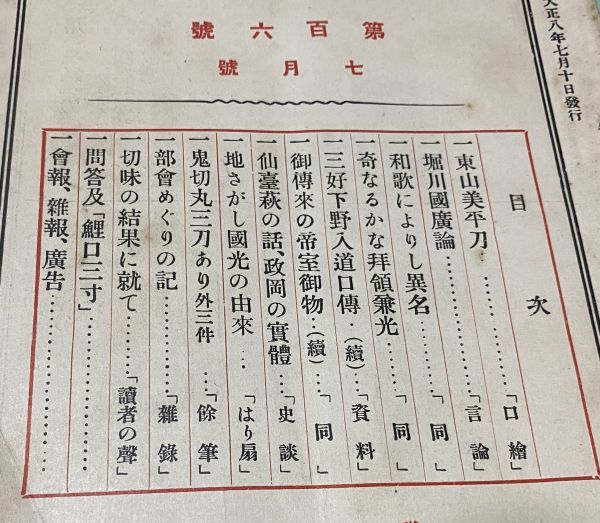 大正八年七月十日發行
第百六號
七月號
目次
一東山美平刀………………「口繪」
一堀川國廣論………………「言論」
一和歌によりし異名…………「同」
一奇なるかな拜領兼光………「同」
一三好下野入道口傳・(續)…「資料」
一御傳來の帝室御物・(續)…「同」
一仙臺萩の話、政岡の實體…「史談」
一地さがし國光の由來…「はり扇」
一鬼切丸三刀あり外三件…「餘筆」
一部會めぐりの記……………「雜錄」
一切味の結果に就て………「讀者の聲」
一問答及「鯉口三寸」………………
一會報、雜報、廣告………………